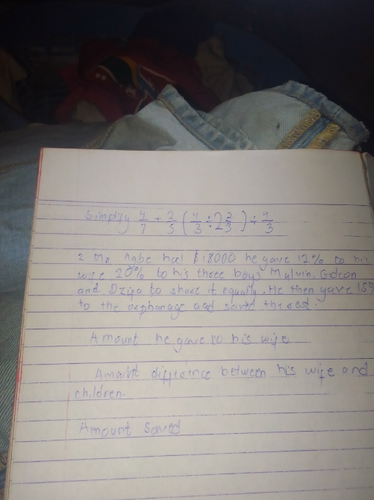 Simplify
2 Mr had $18000 he gave 12% to his
wife 20% to his three boys Malvin, Gideon
and to share it equally. He then gave 15%
to the orphanage and saved the
Amount he gave to his wife
Amount difference between his wife and
children.
Amount Saved